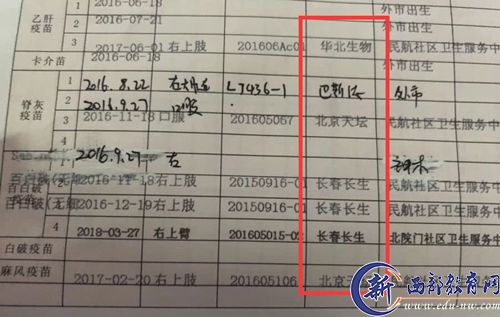 乙肝疫苗 2016-06-18 外市出生
2016-07-21 外市出生
2017-06-01 右上肢 201606Ac01 华北生物 民航社区卫生服务中
卡介苗 2016-06-18 外市出生
脊灰疫苗 1 2016.8.22 L7436-1 巴斯德 外市
2 2016.9.27 口服
3 2016-11-18 口服 201605067 北京天坛 民航社区卫生服务中
4
1 2016.9.27 右
百白破(无细 2016-11-18 右上肢 20150916-01 长春长生 民航社区卫生服务中
百白破(无细 2016-12-19 右上肢 20150916-01 长春长生 民航社区卫生服务中
疫苗 4 2018-03-27 右上臂 201605015-02 长春长生 北院门社区卫生服务中
白破疫苗
麻风疫苗 2017-02-20 右上肢 201605106 北京
新 西部教育网
www.edu-nw.com